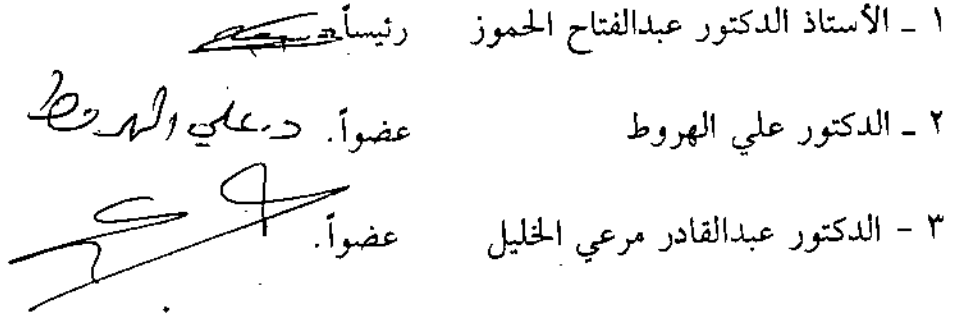 ١ ـ الأستاذ الدكتور عبدالفتاح الحموز رئيساً
٢ ـ الدكتور علي الهروط عضواً. د. علي الهروط
٣ - الدكتور عبدالقادر مرعي الخليل عضواً.